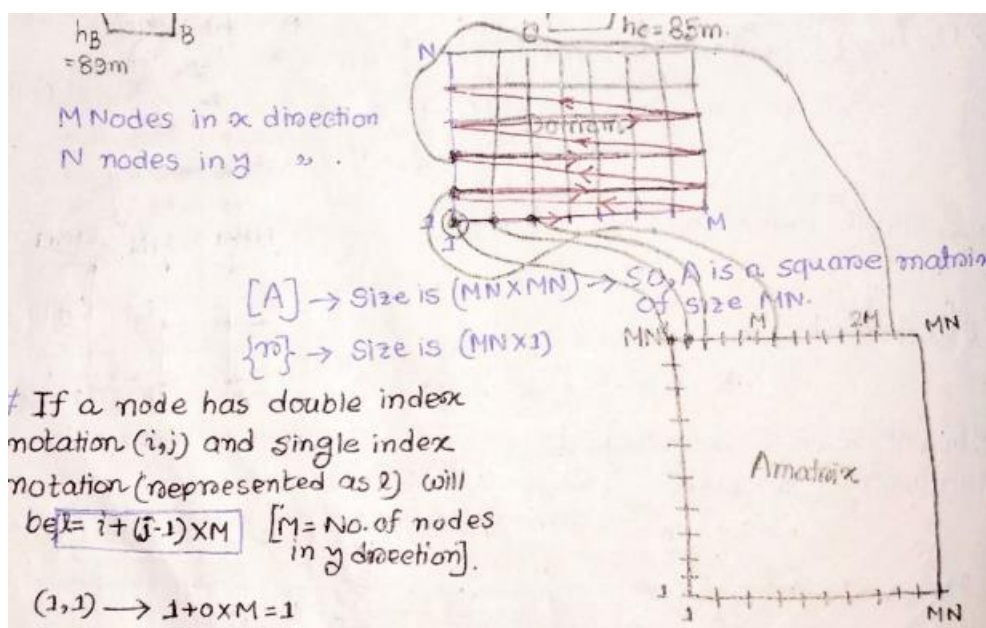 hB
=89m
B
hc=85m.
N
M Nodes in x direction
N nodes in y " .
Domain
1
1
M
[A] → Size is (MN×MN) → SO, A is a square matrix
of size MN.
{r} → Size is (MN×1)
MN
M
2M
MN
# If a node has double index
notation (i,j) and single index
notation (represented as l) will
be l= i+(j-1)×M [M= No. of nodes
in y direction].
A matrix
(1,1) → 1+0×M=1
1
1
MN